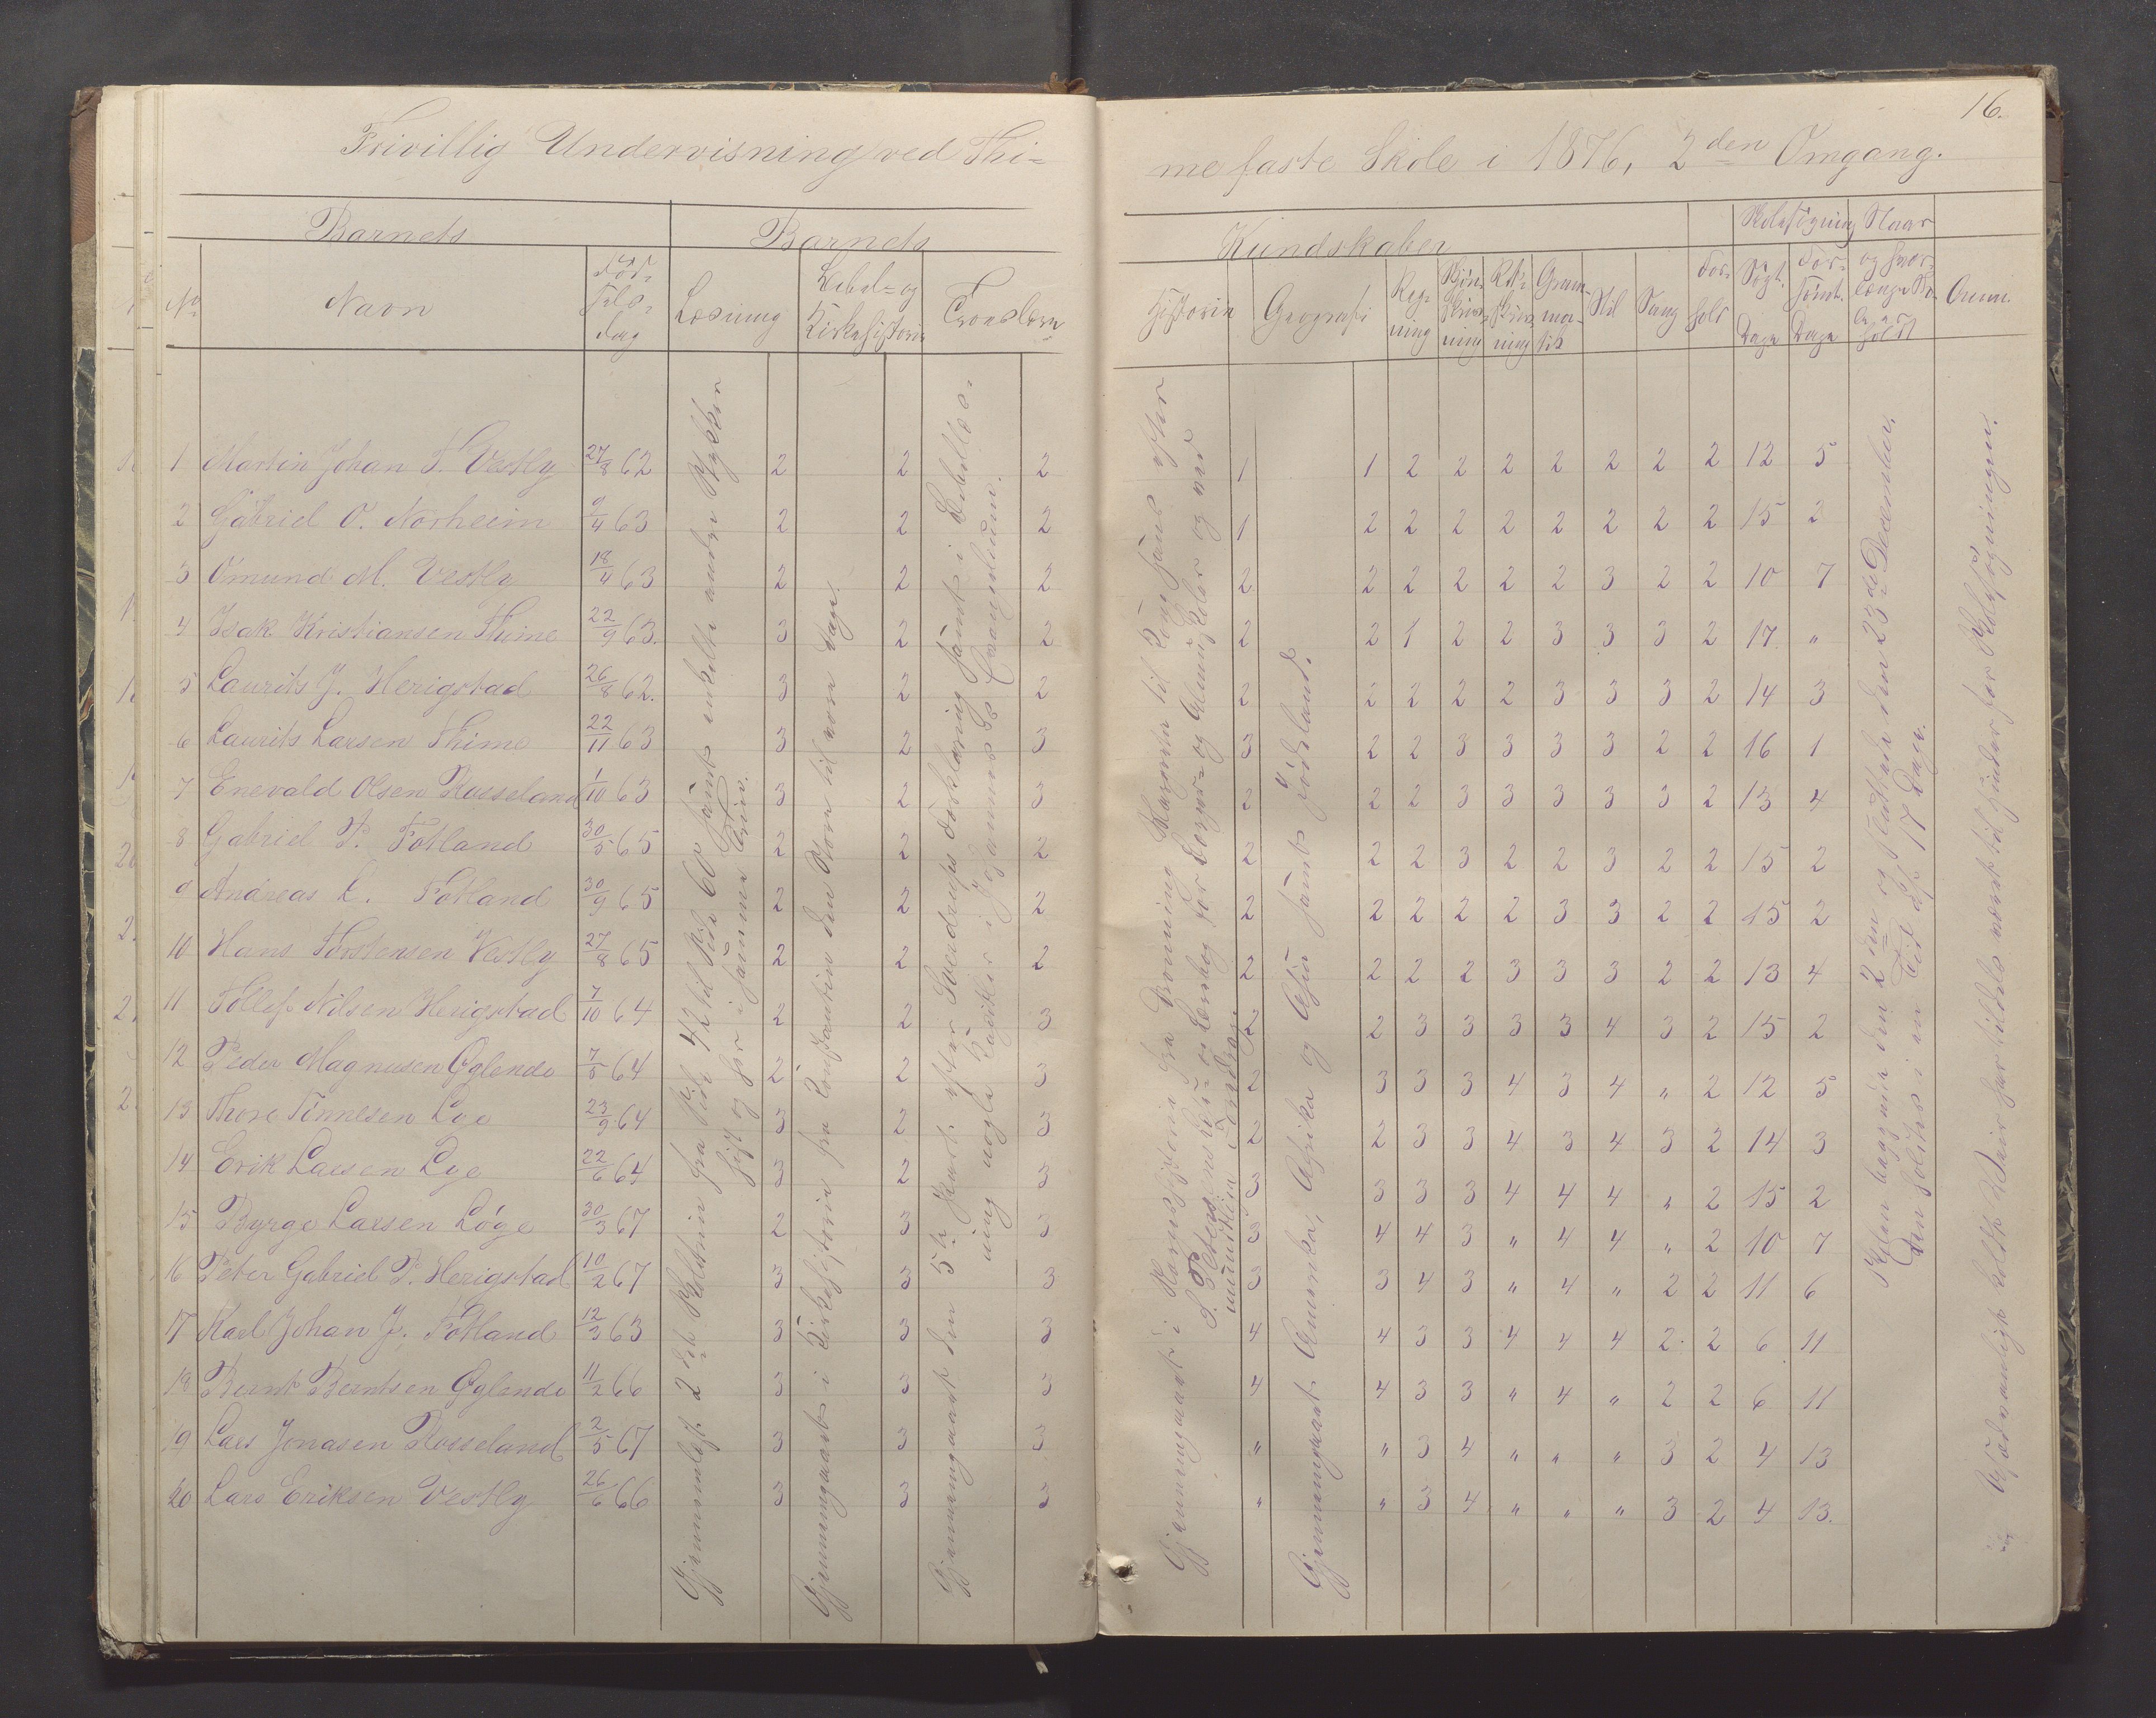 Frivillig Undervisning ved Thi-
Barnets
Barnets
No
Navn
Fød-
sels-
dag
Læsning
Bibel- og
Kirkehistorie
Troeslære
1 Martin Johan T. Vestly 27/8 62 2 2 2
2 Gabriel O. Norheim 9/4 63 2 2 2
3 Omund M. Vestly 18/4 63 2 2 2
4 Isak Kristiansen Thime 22/9 63. 3 2 2
5 Laurits J. Herigstad 26/8 62. 3 2 2
6 Laurits Larsen Thime 22/11 63 3 2 3
7 Enevald Olsen Rosseland 1/10 63 3 2 3
8 Gabriel P. Fotland 30/5 65 2 2 2
9 Andreas L. Fotland 30/9 65 2 2 2
10 Hans Thorstensen Vestly 27/8 65 2 2 2
11 Tollef Nilsen Herigstad 7/10 64 2 2 3
12 Peder Magnusen Øglende 7/5 64 2 2 3
13 Thore Tønnesen Lye 23/9 64 3 2 3
14 Erik Larsen Lye 22/6 64 3 2 3
15 Byrge Larsen Løge 30/3 67 2 3 3
16 Peter Gabriel P. Herigstad 10/2 67 3 3 3
17 Karl Johan J. Fotland 12/3 63 3 3 3
18 Bernt Berntsen Øglende 11/2 66 3 3 3
19 Lars Jonasen Rosseland 2/5 67 3 3 3
20 Lars Eriksen Vestly 26/6 66 3 3 3
Gjennemlæst 2det Skoletrin fra Side 42 til Side 60 samt enkelte andre Stykker
hist og her i samme Trin.
Gjennemgaaet i Kirkehistorie fra Konstantin den Store til vore Dage.
Gjennemgaaet den 5te Part efter Sverdrups Forklaring samt i Bibellæs-
ning nogle Kapitler i Johannes's Evangelium.
16.
me faste Skole i 1876, 2den Omgang.
Kundskaber
Skolesøgning
Naar
Historie
Geografi
Reg-
ning
Skjøn-
skriv-
ning
Ret-
skriv-
ning
Gram-
ma-
tik
Stil
Sang
For-
hold
Søgt.
Dage
For-
sømt.
Dage
og hvor-
længe Sko-
len er
holdt
Anm.
1 1 2 2 2 2 2 2 2 12 5
1 2 2 2 2 2 2 2 2 15 2
2 2 2 2 2 2 3 2 2 10 7
2 2 1 2 2 3 3 3 2 17 "
2 2 2 2 2 3 3 3 2 14 3
3 2 2 3 3 3 3 2 2 16 1
2 2 2 3 3 3 3 3 2 13 4
2 2 2 3 2 2 3 2 2 15 2
2 2 2 2 2 3 3 2 2 15 2
2 2 2 2 3 3 3 2 2 13 4
2 2 3 3 3 3 4 3 2 15 2
2 3 3 3 4 3 4 " 2 12 5
2 2 3 3 4 3 4 3 2 14 3
3 3 3 3 4 4 4 " 2 15 2
3 4 4 3 " 4 4 " 2 10 7
3 3 4 3 " 4 " 2 2 11 6
4 4 3 3 4 4 4 2 2 6 11
4 4 3 3 " 4 " 2 2 6 11
" " 3 4 " " " 3 2 4 13
" " 3 4 " " " 3 2 4 13.
Gjennemgaaet i Norgeshistorie fra Dronning Margrete til Kong Hans efter
S. Petersens Læse- og Lærebog for Borger- og Almueskoler og ved
mundtlig Foredrag
Gjennemgaaet Amerika, Afrika og Asien samt Jødeland.
Skolen begyndte den 2den og sluttede den 23de December.
Den holdtes i en Tid af 17 Dage.
Usædvanligt koldt Veir har tildels været til Hinder for Skolesøgningen.